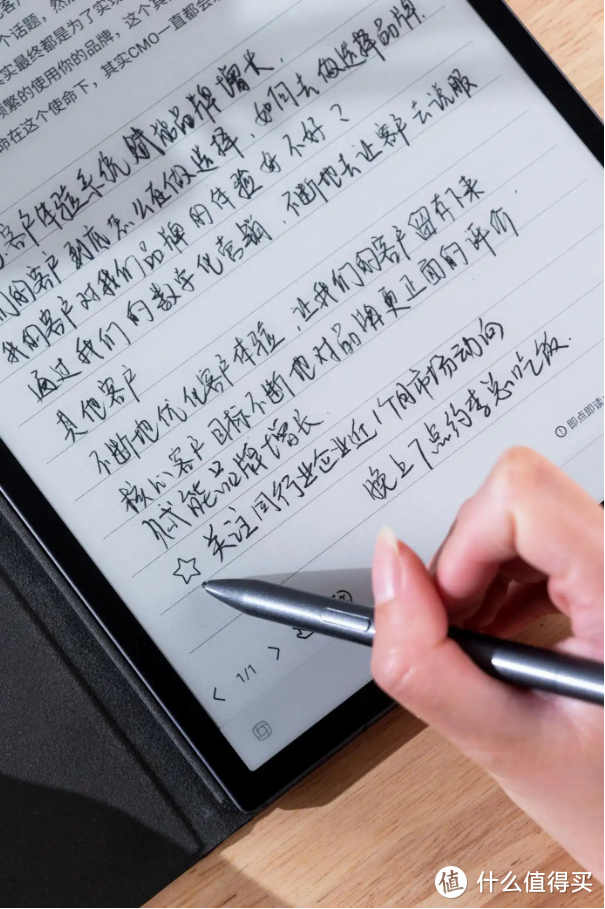 个话题，然
实最终都是为了实现
频繁的使用你的品牌，这个其
命在这个使命下，其实CMO一直都会
客户体验系统 赋能品牌增长.
们的客户到底怎么在做选择，如何去做选择品牌.
我们客户对我们品牌的体验好不好？
通过我们的数字化营销，不断地去让客户去说服
其他客户
不断地优化客户体验，让我们的客户留存下来
核心客户目标不断地对品牌更正面的评价.
赋能品牌增长.
☆ 关注同行业企业近1个月市场动向
晚上7点约李总吃饭.
①即点即读
< 1/1 >
值 什么值得买